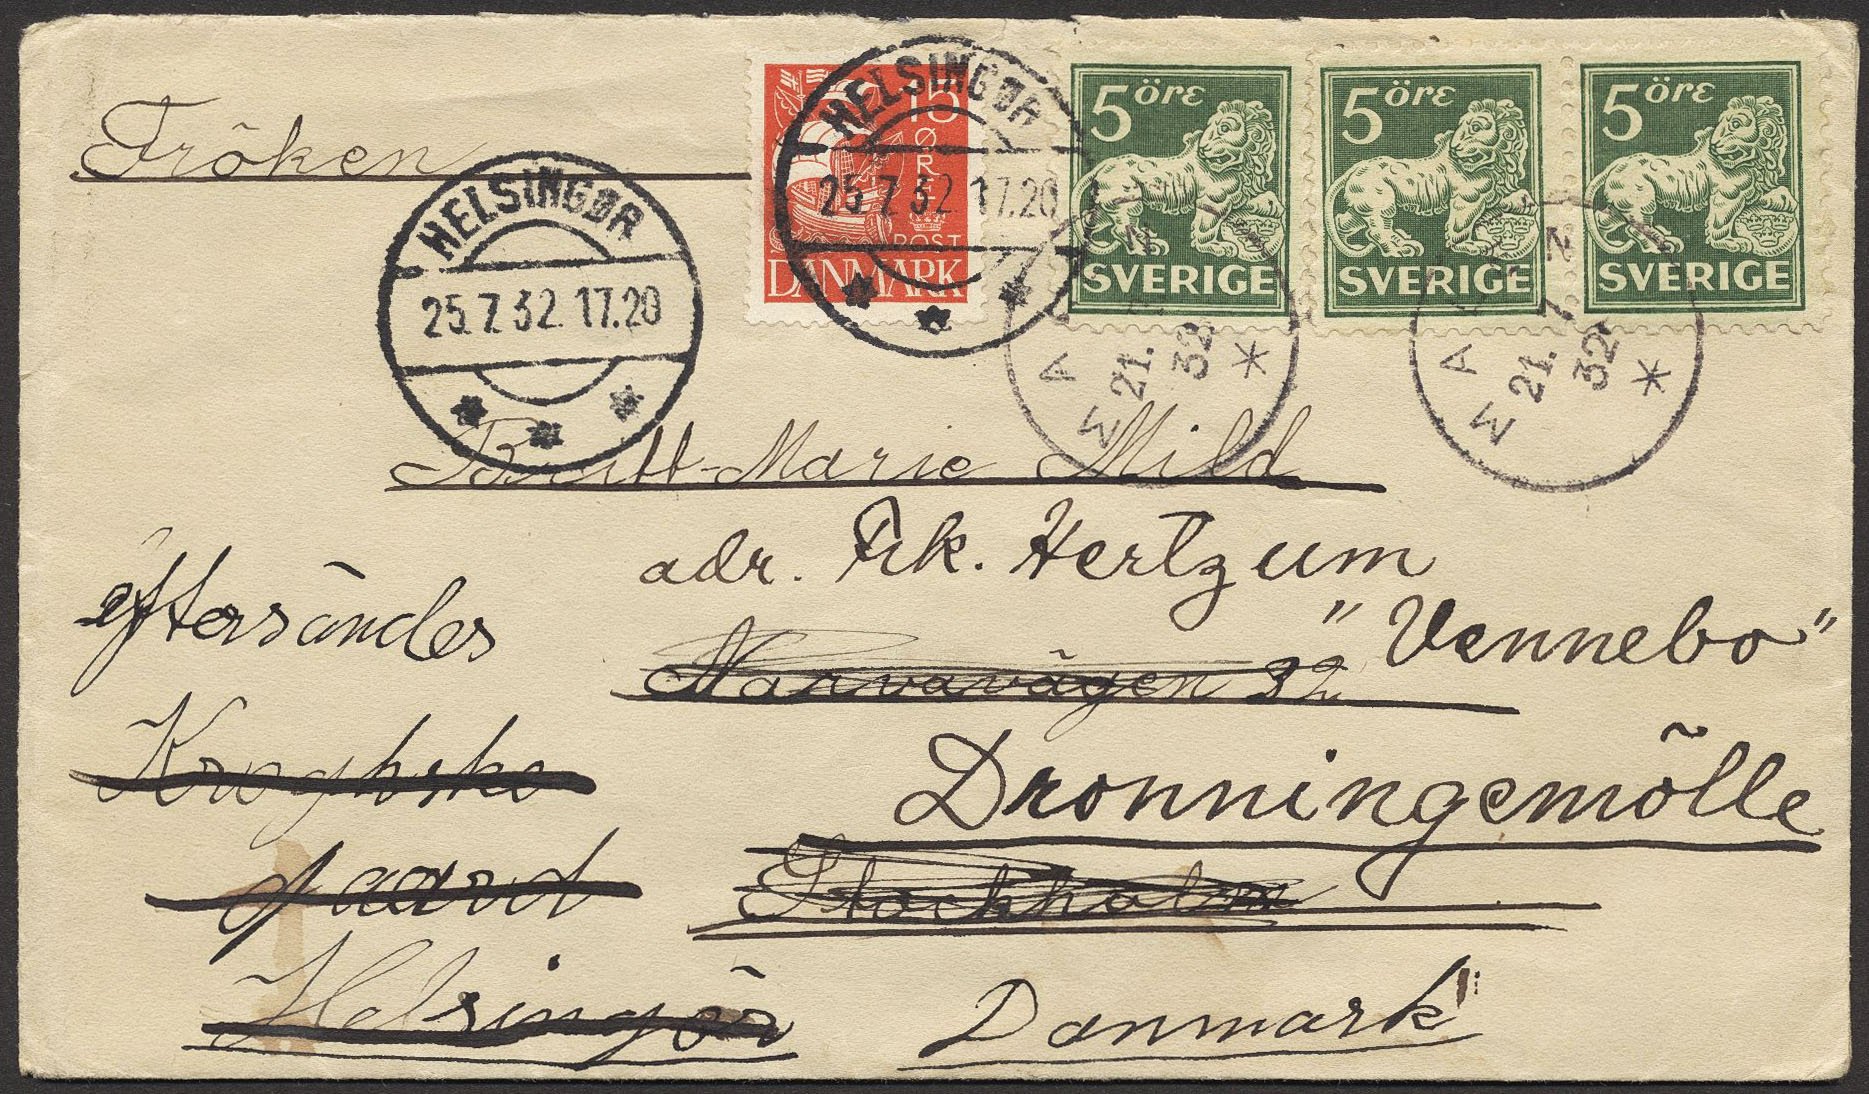 Fröken
HELSINGØR
25.7.32.17.20
15
ØRE
POST
DANMARK
HELSINGØR
25.7.32 17.20
5 öre
SVERIGE
5 öre
SVERIGE
5 öre
SVERIGE
21.7.
32
21.7.
32
Britt-Marie Mild
adr. Frk. Hertzum
"Vennebo"
eftersändes
Narvavägen 32
Kroghske
Dronningemölle
gaard
Stockholm
Helsingör
Danmark